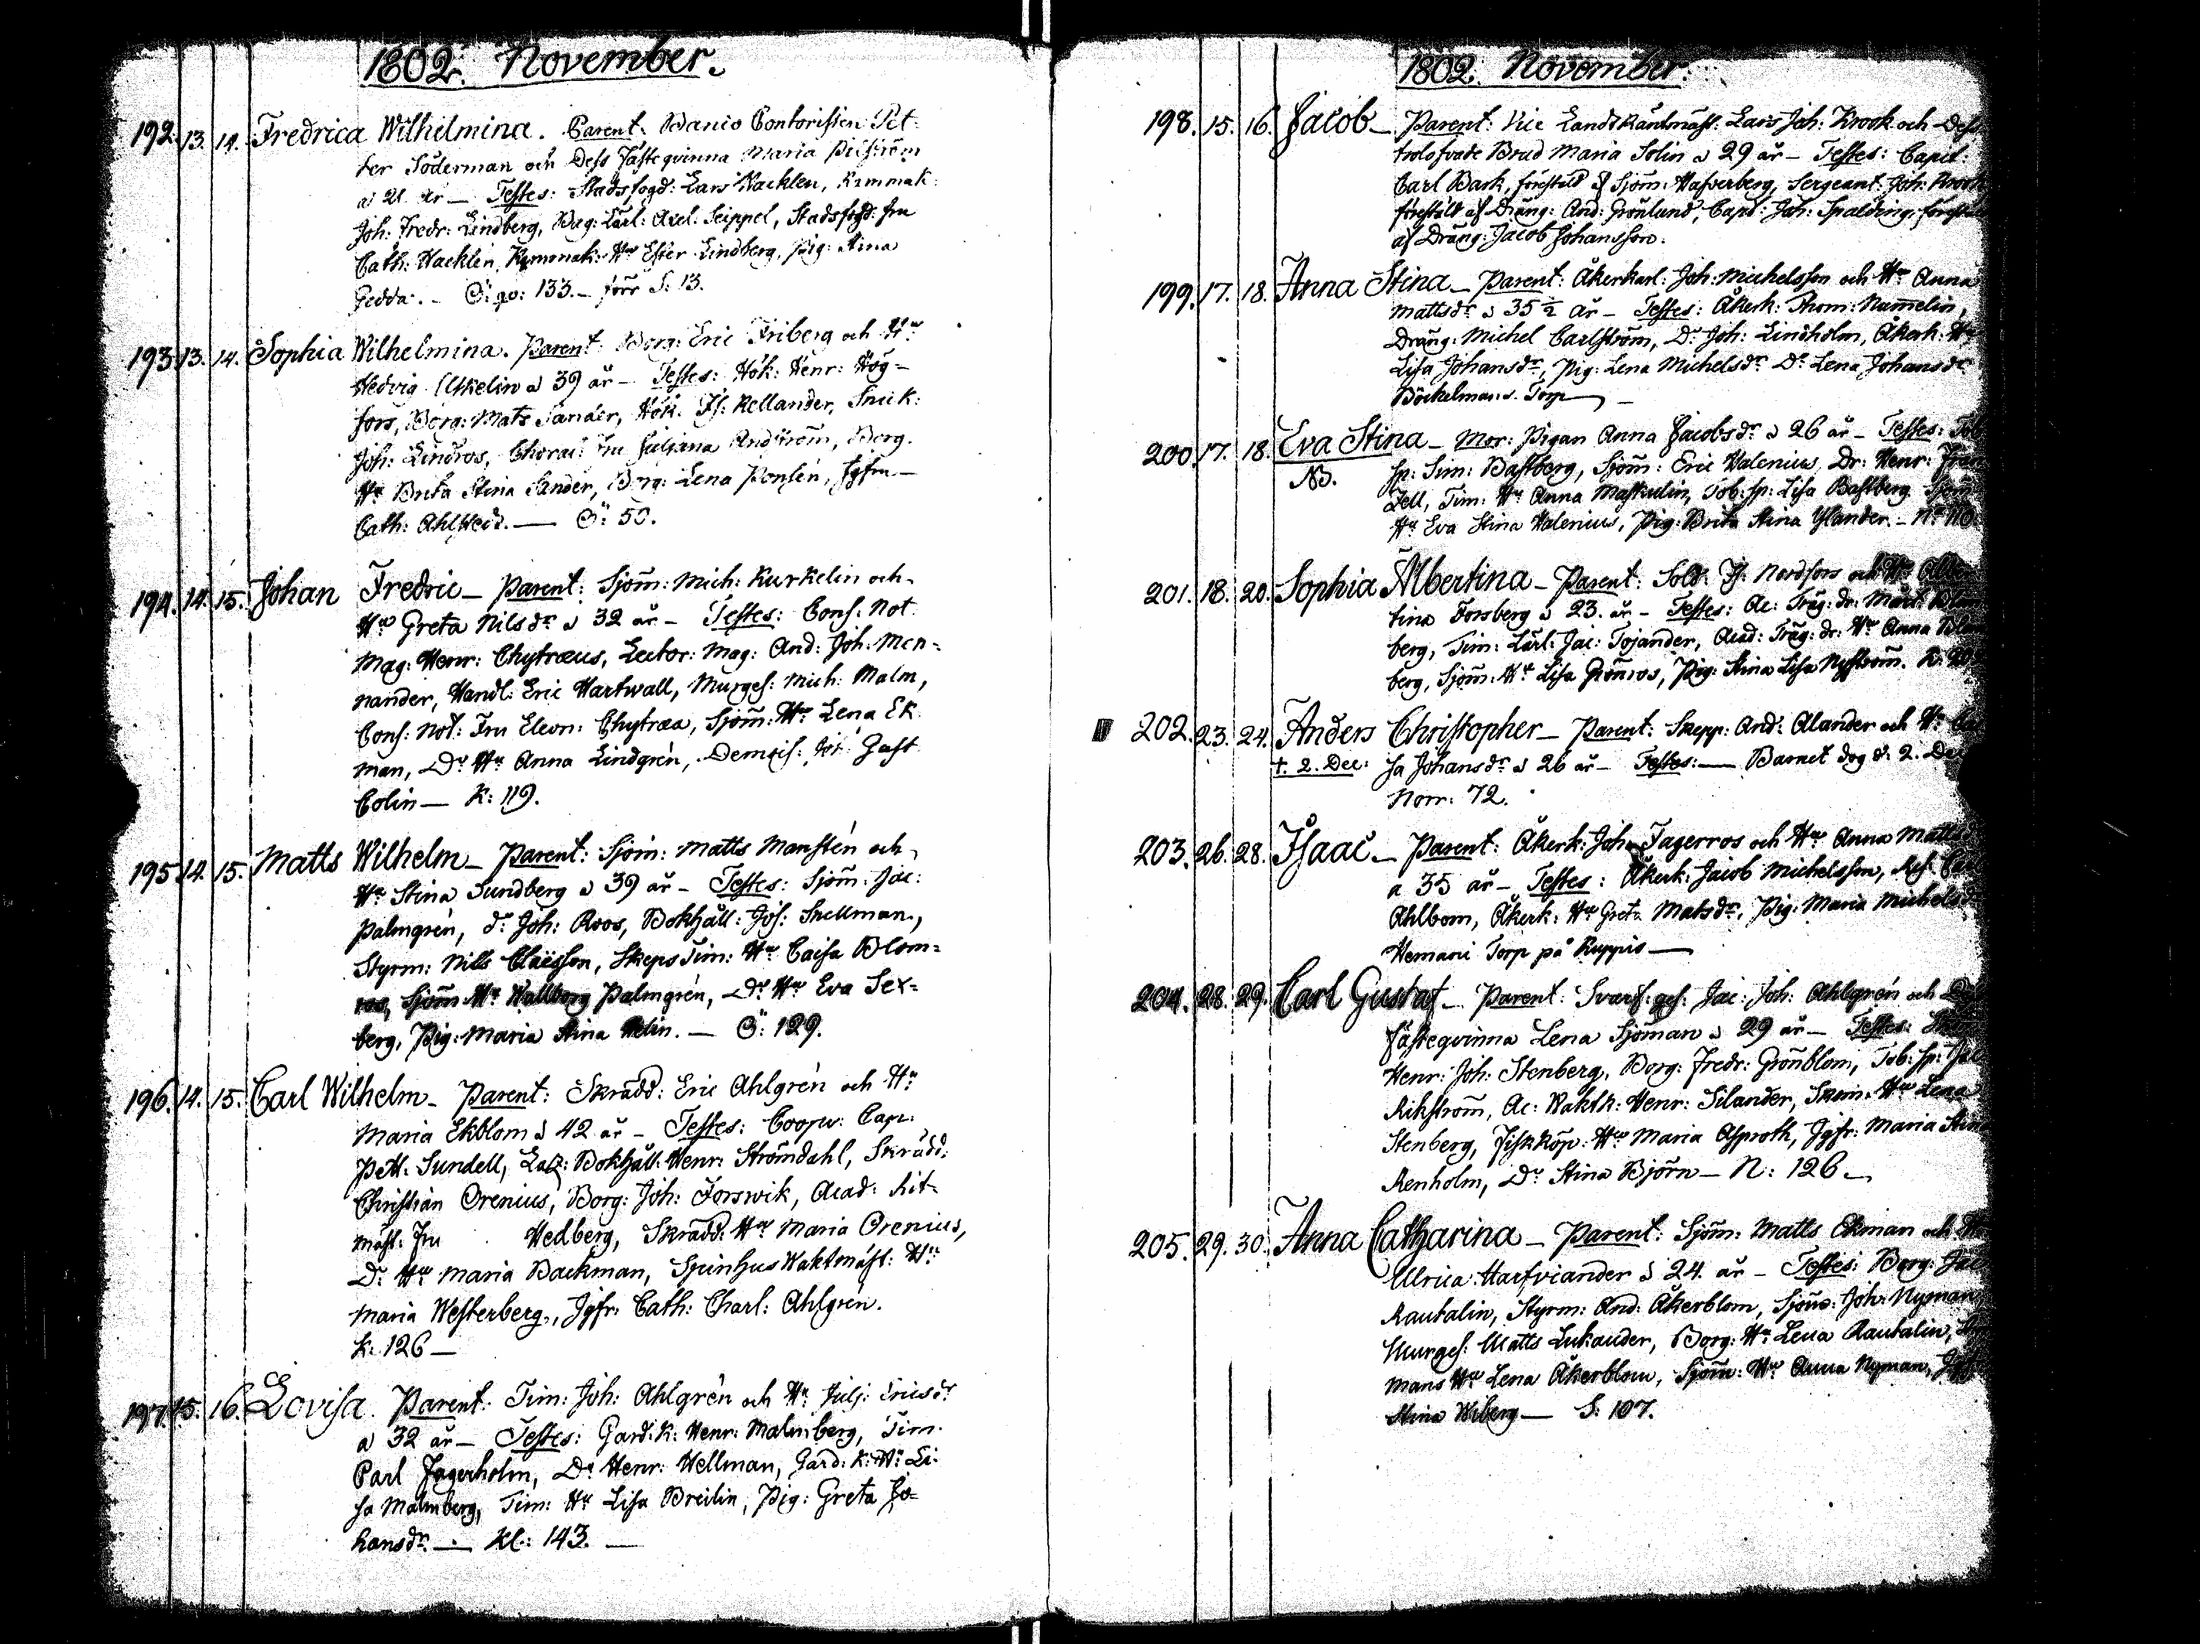 1802. November.
192. 13. 14. Fredrica Wilhelmina. Parent: Banco Contoristen Pet-
ter Söderman och Dess Fästeqvinna Maria
a 21 år — Testes: Stadsfogd: Lars Hacklin, Kammak:
Joh: Fredr: Lindberg, Bag: Lärl: Axel: Seippel, Stadsfogd: fru
Cath: Hacklin, Kammak: Hu Ester Lindberg, Pig: Stina
Gedda. — Ö: qv: 133. — förr S: 13.
193. 13. 14. Sophia Wilhelmina. Parent: Borg: Eric Friberg och Hu
Hedvig a 39 år — Testes: Hök: Henr: Hög-
fors, Borg: Mats Sander, Hök: Is: Kellander, Snick:
Joh: Lindros, Fru Juliana Andström, Borg.
Hu Brita Stina Sander, Borg: Lena Jgfru —
Cath: — Ö: 50.
194. 14. 15. Johan Fredric — Parent: Sjöm: Mich: Kurkelin och
Hu Greta Nilsdr a 32 år — Testes: Cons: Not:
Mag: Henr: Chytræus, Lector: Mag: And: Joh: Men-
nander, Handl: Eric Hartwall, Murges: Mich: Malm,
Cons: Not: Fru Eleon: Chytræa, Sjöm: Hu Lena Ek
man, Dr Hu Anna Lindgrén, Demois: Gust
Colin — K: 119.
195. 14. 15. Matts Wilhelm — Parent: Sjöm: Matts Monstén och
Hu Stina Sundberg a 39 år — Testes: Sjöm: Jac:
Palmgrén, dr Joh: Roos, Bokhåll: Jos: Snellman,
Styrm: Nils Claësson, Skeps Tim: Hu Caisa Blom-
ros, Sjöm: Hu Wallborg Palmgrén, Dr Hu Eva Sex-
berg, Pig: Maria Stina — Ö: 129.
196. 14. 15. Carl Wilhelm — Parent: Skrädd: Eric Ahlgrén och Hu
Maria Ekblom a 42 år — Testes: Coopv: Capt:
Pett: Sundell, Laz: Bokhåll: Henr: Strömdahl, Skrädd:
Christian Orenius, Borg: Joh: Forswik, Acad: Rit-
mäst: Fru Hedberg, Skrädd: Hu Maria Orenius,
Dr Hu Maria Backman, Spinhus Waktmäst: Hu
Maria Westerberg, Jgfr: Cath: Charl: Ahlgrén.
K: 126 —
197. 15. 16. Lovisa. Parent: Tim: Joh: Ahlgrén och Hu Julj: Ericsdr
a 32 år — Testes: Gard: K: Henr: Malmberg, Tim:
Carl Fagerholm, Dr Henr: Hellman, Gard: K: Hu Li-
sa Malmberg, Tim: Hu Lisa Breilin, Pig: Greta Jo-
hansdr. — Kl: 143. —
1802. November.
198. 15. 16. Jacob — Parent: Vice Landtränt­mäst: Lars Joh: Krook och Dess
trolofvade Brud Maria Solin a 29 år — Testes: Capit:
Carl Bark, förestäld af Sjöm: Hafverberg, Sergeant: Joh: Krook
föreställt af Dräng: And: Grönlund, Capt: Joh: Spalding,
af Dräng: Jacob Johansson.
199. 17. 18. Anna Stina — Parent: Åkerkarl: Joh: Michelsson och Hu Anna
Mattsdr a 35 ½ år — Testes: Åkerk: Thom: Numelin,
Dräng: Michel Carlström, Dr Joh: Lindholm, Åkerk: Hu
Lisa Johansdr, Pig: Lena Michelsdr Dr Lena Johansdr
Böckelmans Torp —
200. 17. 18. Eva Stina — Mor: Pigan Anna Jacobsdr a 26 år — Testes: Tob:
NB. Sp: Sim: Bastberg, Sjöm: Eric Valenius, Dr: Henr:
Tim: Hu Anna Maskulin, Tob: Sp: Lisa Bastberg Sjöm:
Hu Eva Stina Valenius, Pig: Brita Stina Ylander. — N: 110.
201. 18. 20. Sophia Albertina — Parent: Sold: Is: Nordfors och Hu Alber
tina Forsberg a 23. år — Testes: Ac: Träg: dr: Mårt:
berg, Tim: Lärl: Jac: Tojander, Acad: Träg: dr: Hu Anna
berg, Sjöm: Hu Lisa Grönros, Pig: Stina Lisa Nyström.
202. 23. 24. Anders Christopher — Parent: Skepp: And: Alander och Hu
†. 2. Dec: sa Johansdr a 26 år — Testes: — Barnet dog d: 2. De
Norr: 72.
203. 26. 28. Isaac — Parent: Åkerk: Joh: Fagerros och Hu Anna Matts
a 35 år — Testes: Åkerk: Jacob Michelsson,
Ahlbom, Åkerk: Hu Greta Matsdr, Pig: Maria Michelsd
Hemani Torp på Kuppis —
204. 28. 29. Carl Gustaf — Parent: Svarf: ges: Jac: Joh: Ahlgrén och
fästeqvinna Lena Sjöman a 29 år — Testes:
Henr: Joh: Stenberg, Borg: Fredr: Grönblom, Tob: Sp: Jac
Rikström, Ac: Wakth: Henr: Silander, Hu Lena
Stenberg, Fiskköp: Hu Maria Asproth, Jgfr: Maria Stina
Renholm, Dr Stina Björn — N: 126 —
205. 29. 30. Anna Catharina — Parent: Sjöm: Matts Ekman och Hu
Ulrica Hartviander a 24 år — Testes: Borg: Jac
Rautalin, Styrm: And: Åkerblom, Sjöm: Joh: Nyman,
Murges: Matts Lukander, Borg: Hu Lena Rautalin,
mans Hu Lena Åkerblom, Sjöm: Hu Anna Nyman,
Stina Wiberg — S: 107.